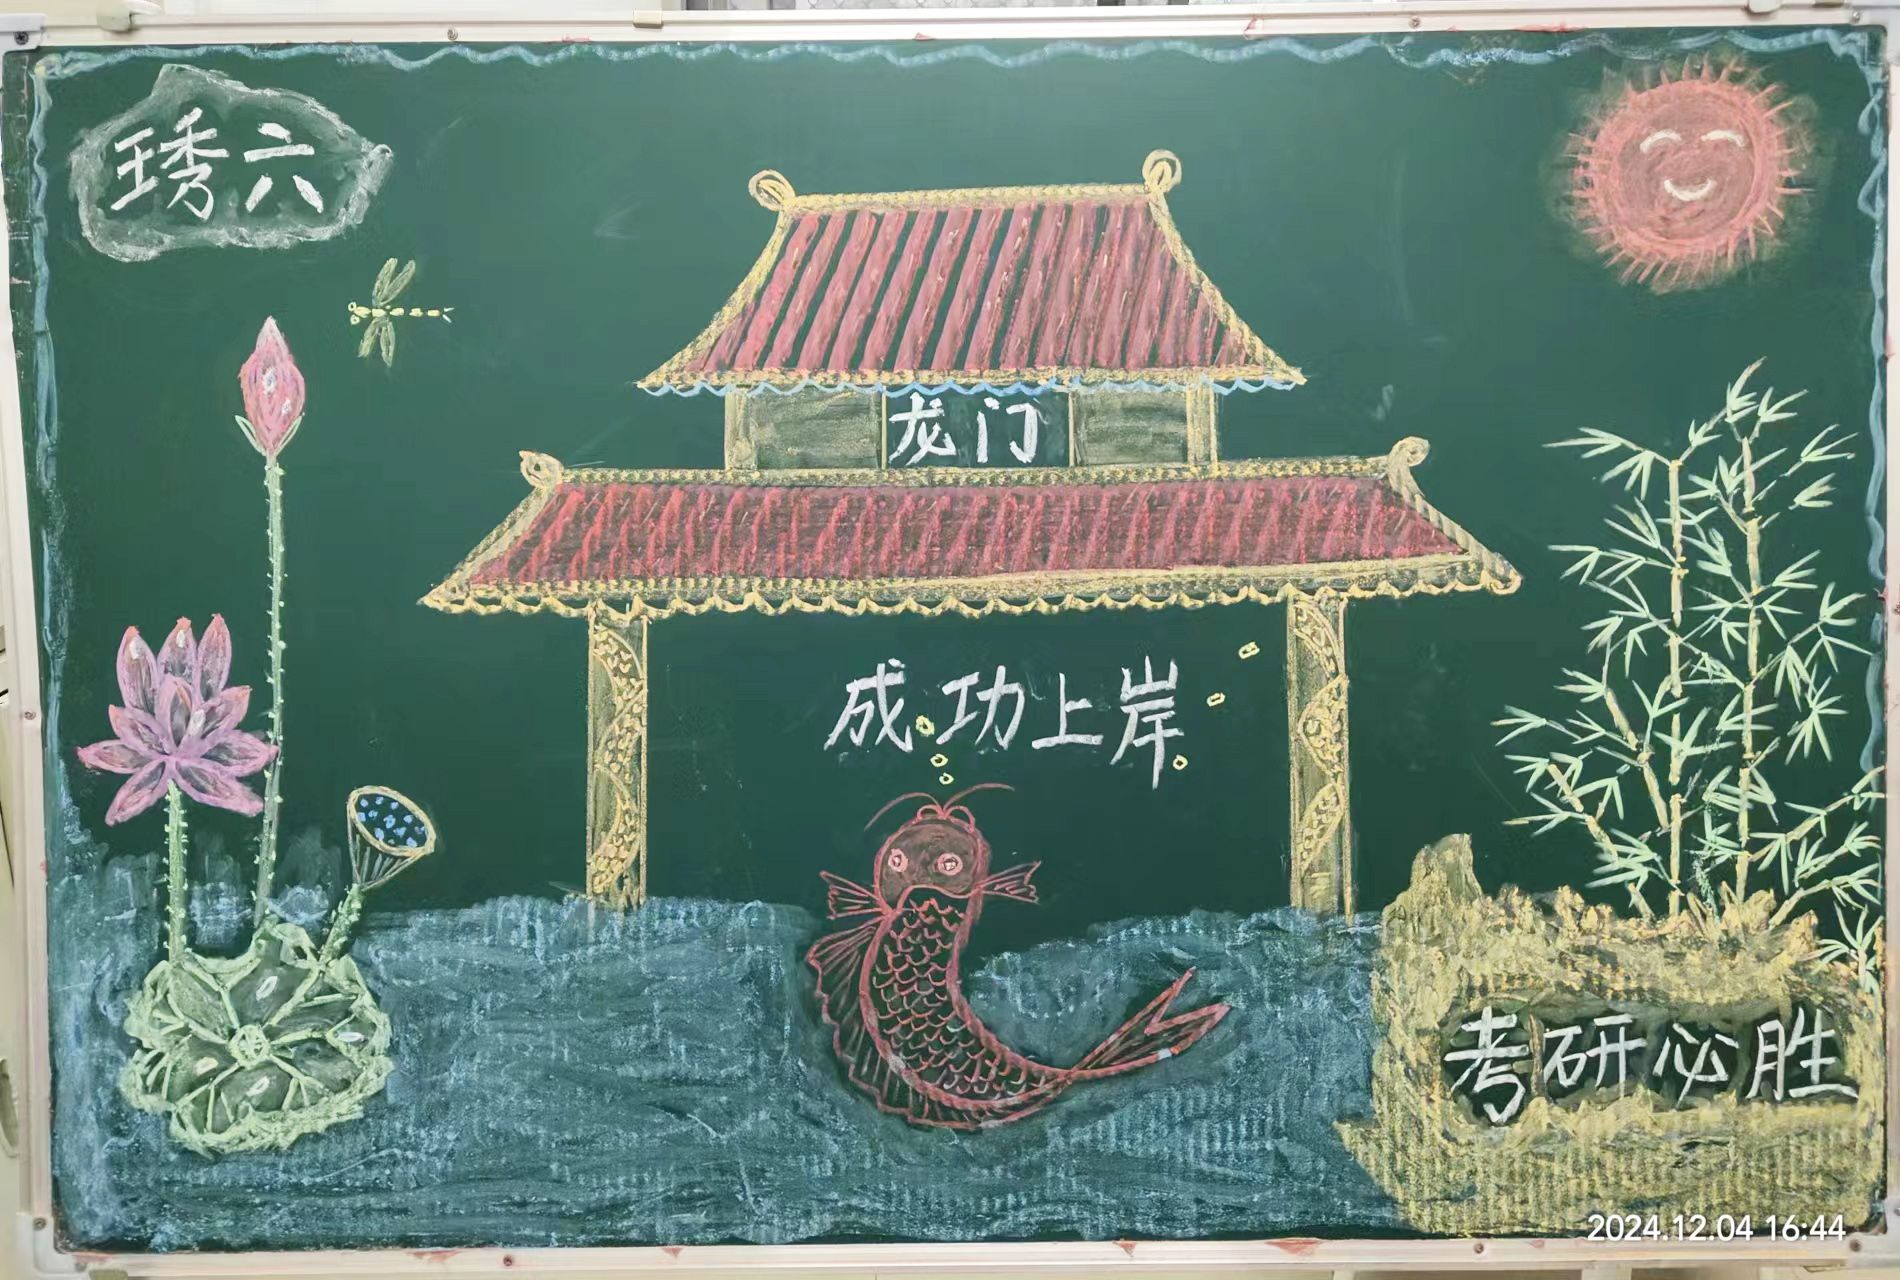 琇六
龙门
成功上岸
考研必胜
2024.12.04 16:44